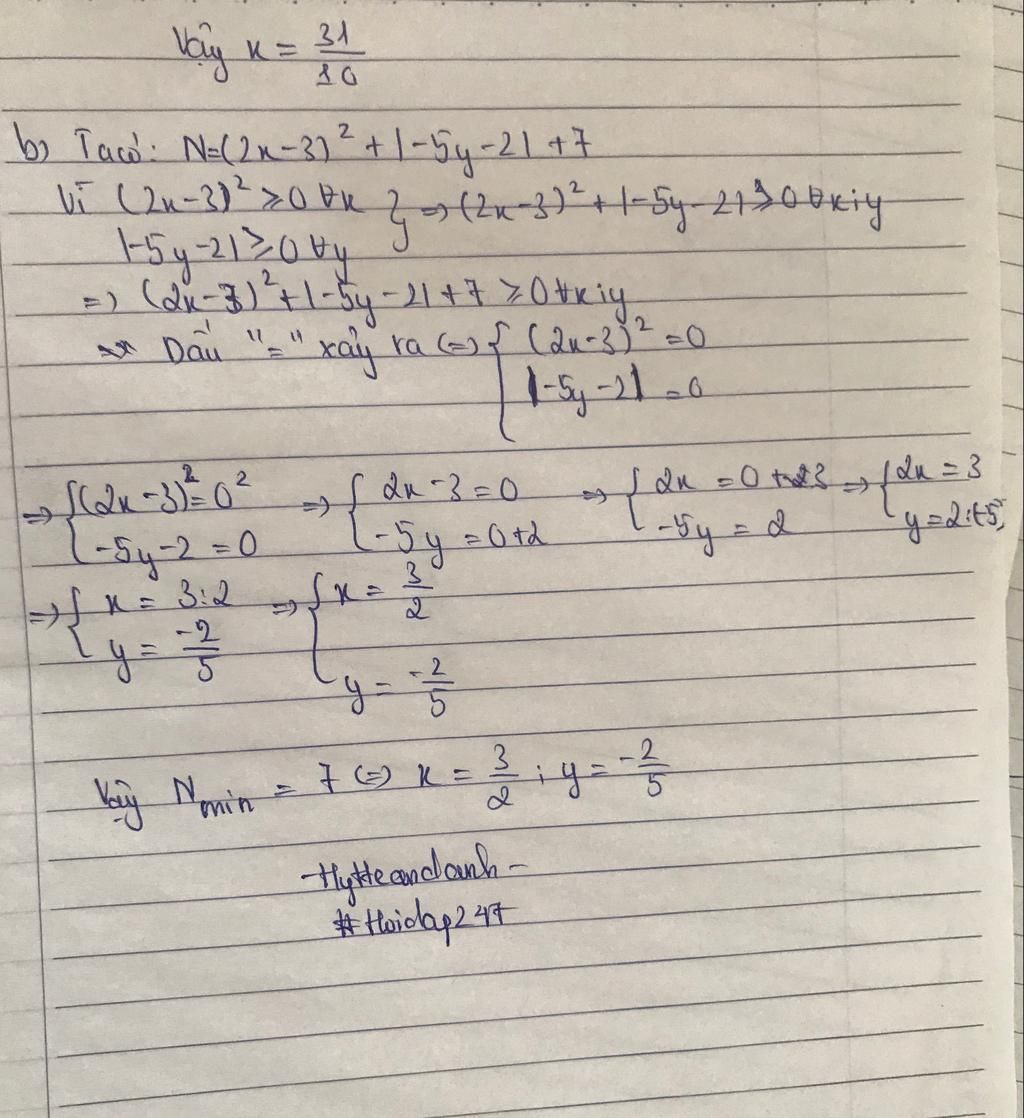 Vậy x = 31/10
b) Ta có: N=(2x-3)² + |-5y-2| + 7
Vì (2x-3)² ≥ 0 ∀x } => (2x-3)² + |-5y-2| ≥ 0 ∀x;y
|-5y-2| ≥ 0 ∀y
=> (2x-3)² + |-5y-2| + 7 ≥ 0 ∀x;y
Dấu "=" xảy ra <=> { (2x-3)² = 0
|-5y-2| = 0
=> { (2x-3)² = 0² => { 2x-3 = 0 => { 2x = 0+3 => { 2x = 3
-5y-2 = 0 -5y = 0+2 -5y = 2 y = 2:(-5)
=> { x = 3:2 => { x = 3/2
y = -2/5
y = -2/5
Vậy Nmin = 7 <=> x = 3/2 ; y = -2/5
-HyHeandanh-
#Hoidap247